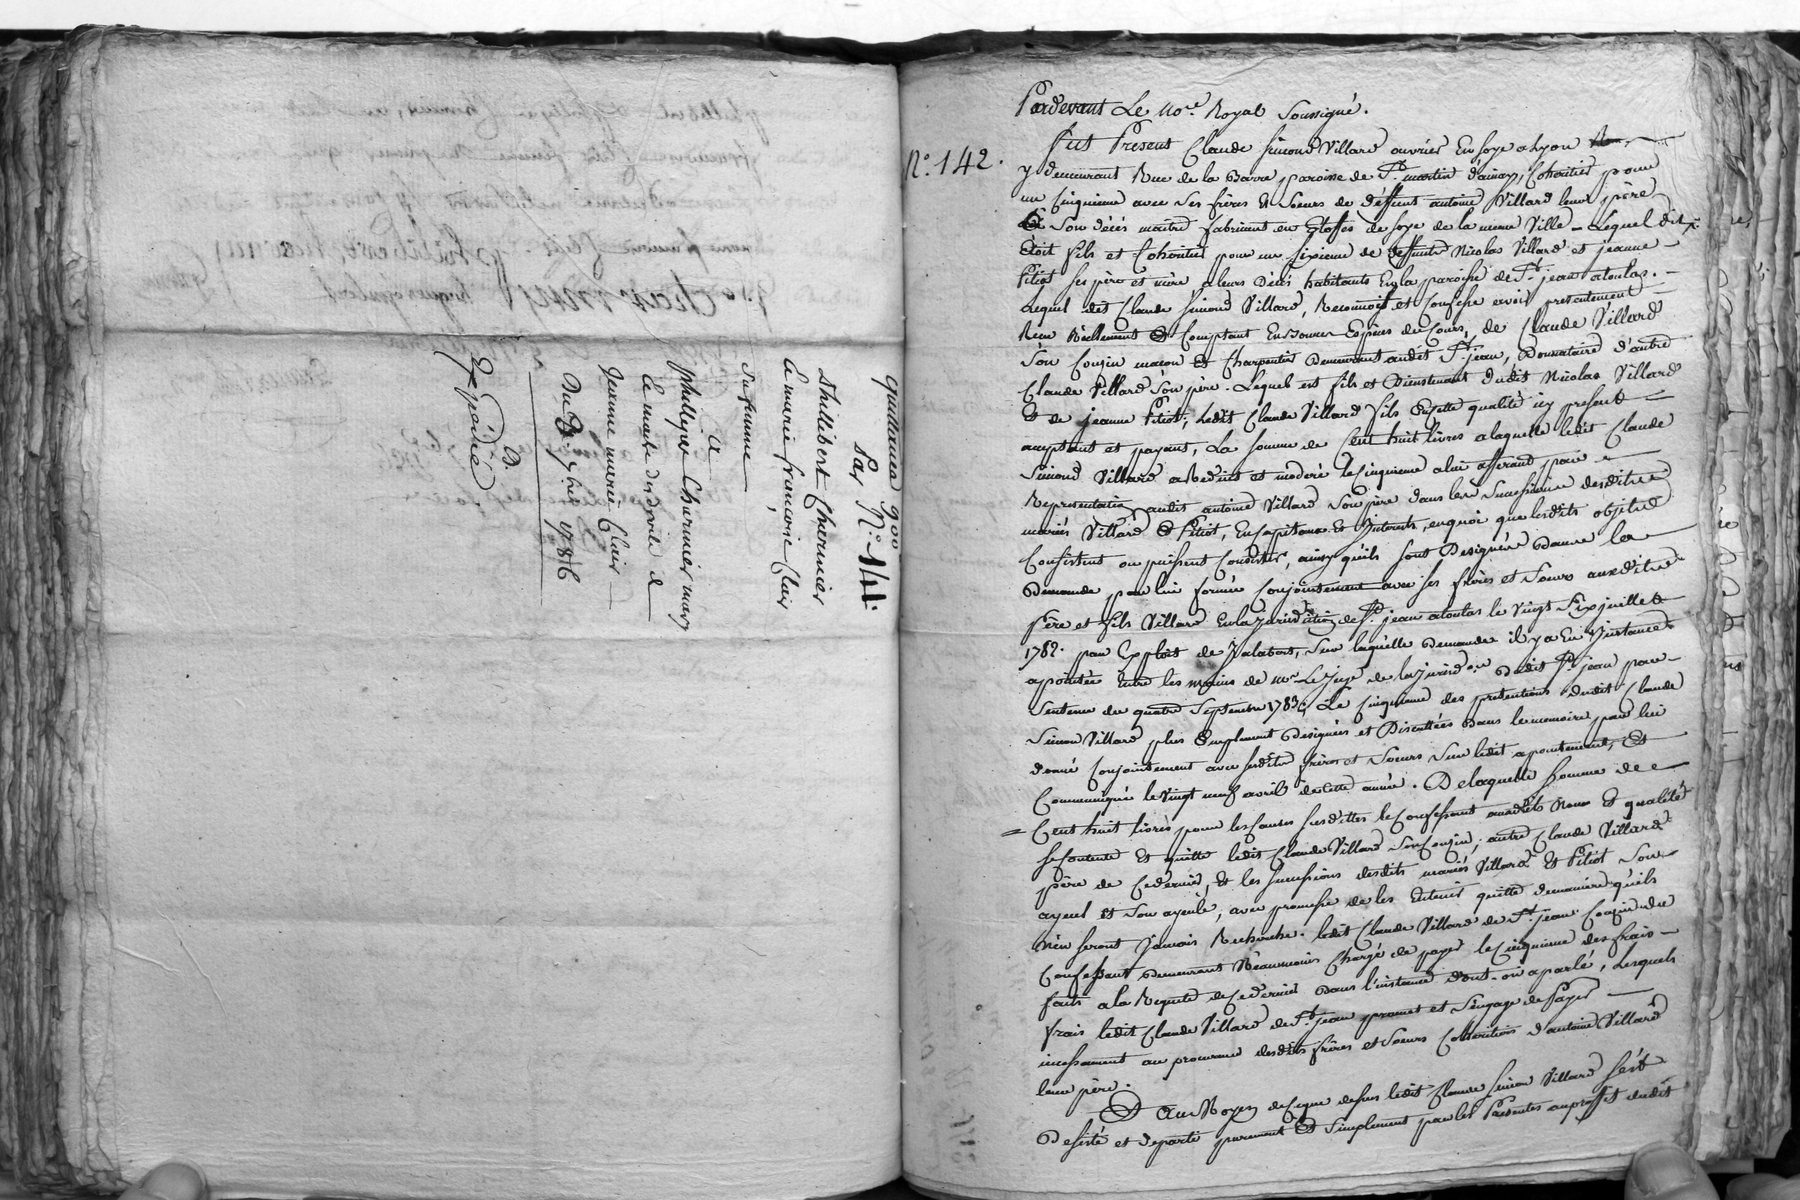 quittance 900
Par N.º 141.
Phillibert Charmier
& marie francoise Clair
sa femme
a
phillippe Charmier mary
Jeanne marie Clair
Du 7bre 1786
Expédié
N.º 142.
Pardevant Le No.re Royal Soussigné.
fut Present Claude simond Villard ouvrier En soye a Lyon
y demeurant Rue de la Barre, paroisse de St. martin d'ainay, Cohéritier pour
un Cinquieme avec ses frères & soeurs de deffunt antoine Villard leur père
à Son décés maitre fabricant en Etoffes de soye de la meme Ville - Lequel dit
Étoit fils et Cohéritier pour un sixieme de deffunts Nicolas Villard et jeanne
Pitiot ses père et mère, a leurs Décés habitants En la paroisse de St. jean atoulas. -
Lequel dit Claude simond Villard, Reconnoit et Confesse avoir presentement
Reçu Réellement & Comptant En bonnes Espèces de Cours, de Claude Villard
Son Cousin maçon & Charpentier Demeurant audit St. jean, Donnataire d'autre
Claude Villard Son père. Lequel est fils et Dudit Nicolas Villard
Et de jeanne Pitiot; Ledit Claude Villard fils En cette qualité icy present
acceptant et payant, La somme de Cent huit livres a laquelle ledit Claude
Simond Villard a Reduit et modéré le Cinquieme a lui afferant par
Representation audit antoine Villard Son père dans les Successions desdits
mariés Villard & Pitiot, En Capitaux & Interets, en quoi que lesdits objets
Consistent ou puissent Consister, ainsy qu'ils sont Designés dans la
Demande par lui formée Conjointement avec ses frères et Soeurs auxdits
père et fils Villard En la Jurisdiction de St. jean atoulas le Vingt Six juillet
1782. par Exploit de Valabert, Sur laquelle Demande il y a Eu Instance
apointée Entre les mains de mr. Le Juge de la Jurid.on dudit St. jean par
Sentence du quatre Septembre 1783; Le Cinquieme des pretentions dudit Claude
Simon Villard plus Emplement Designées et Discuttées Dans le memoire par lui
donné Conjointement avec sesdits frères et Soeurs Sur ledit apointement, Et
Communiqué le Vingt neuf avril de cette année. De laquelle somme de
= Cent huit livres pour les Causes susdittes le Confessant auxdits Nom Et qualité
se Contente Et quitte ledit Claude Villard Son Cousin; autre Claude Villard
père de Ce dernier, & les successions desdits mariés Villard Et Pitiot Son
ayeul et Son ayeule, avec promesse de les Entenir quitte demanière qu'ils
n'en seront Jamais Recherchés. Ledit Claude Villard de St. jean Cousin du
Confessant demeurant Néanmoins Chargé de payer le Cinquieme des frais -
faits a la Requete de Ce dernier dans l'instance dont on a parlé, Lesquels
frais ledit Claude Villard de St. jean promet et S'engage de payer
incessamment au procureur desdits frères et Soeurs Cohéritiers d'antoine Villard
leur père.
Et Au Moyen de Ce que dessus ledit Claude simon Villard s'est
Desisté et departi purement & Simplement par les Presentes au proffit dudit